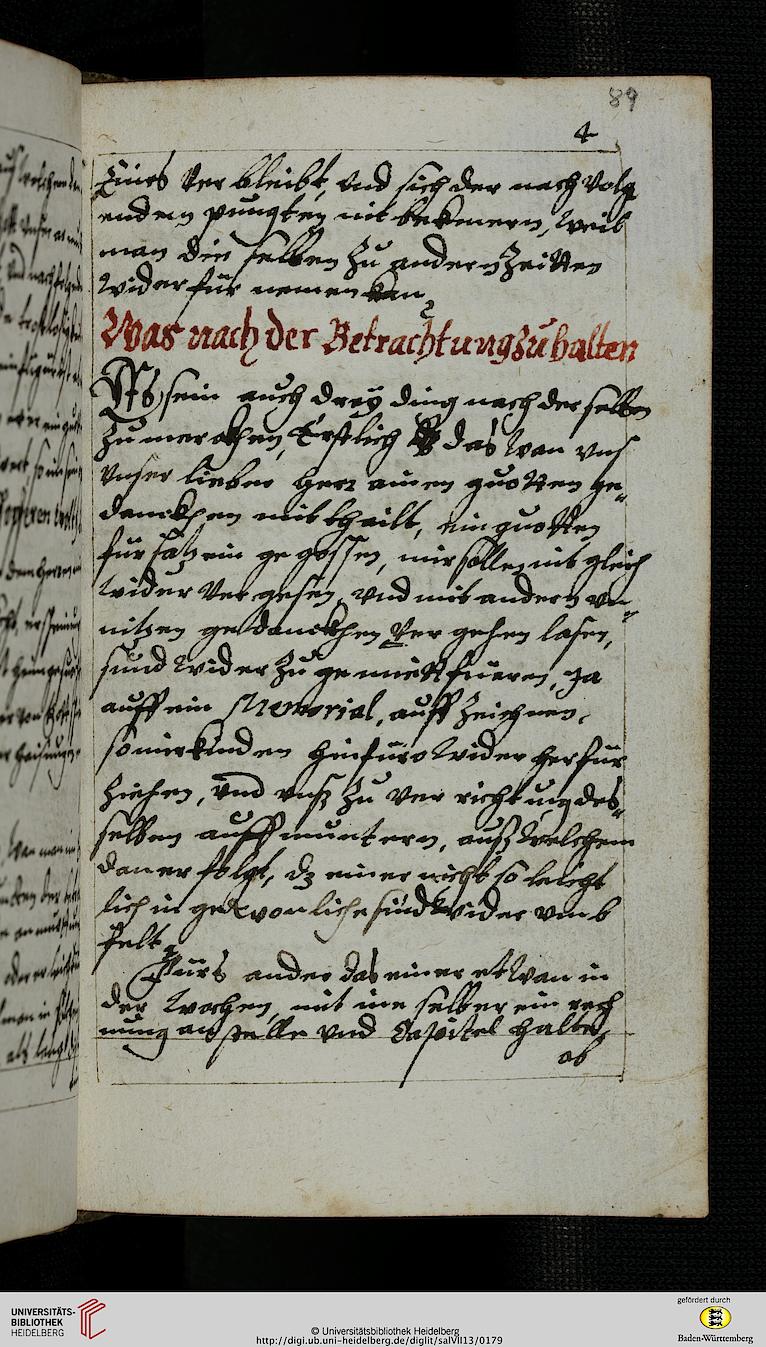 89
4
Eines verbleibt, vnd sich der nach volg
enden pungten nit bekimern, weil
man die selben zu andern Zeitten
wider fur nemen kan.
Was nach der Betrachtung zu halten
Es sein auch drey ding nach der selben
zu merckhen, Erstlich das wan vnß
vnser lieber herr ainen guotten ge„
danckhen mitthailt, ein guotten
fursatz ein gegossen, mir sollen nit gleich
wider vergesen, vnd mit andern vn„
nitzen gedanckhen vergehen lasen,
sund wider zu gemiett fueren, Ja
auff ein Memorial, auff zeichnen,
so mir kinden hinfuro wider herfur
ziehen, vnd vnß zu verrichtung des„
selben auffmuntern, auß welchem
dan erfolgt, dz einer nicht so leicht
lich in gewonliche sind wider vmb
felt.
Furs ander das einer etwan in
der wochen, mit ime selber ein rech
nung anstelle vnd Capitel halte,
ob
UNIVERSITÄTS-
BIBLIOTHEK
HEIDELBERG
© Universitätsbibliothek Heidelberg
http://digi.ub.uni-heidelberg.de/diglit/salVII13/0179
gefördert durch
Baden-Württemberg